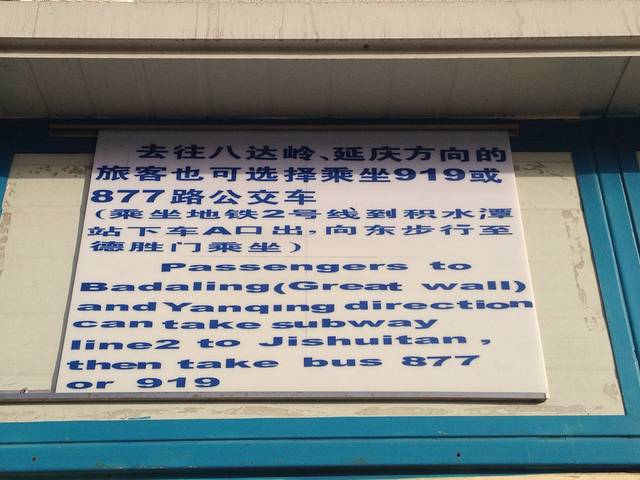 去往八达岭、延庆方向的
旅客也可选择乘坐919或
877路公交车
(乘坐地铁2号线到积水潭
站下车A口出,向东步行至
德胜门乘坐)
Passengers to
Badaling(Great wall)
and Yanqing direction
can take subway
line2 to Jishuitan ,
then take bus 877
or 919